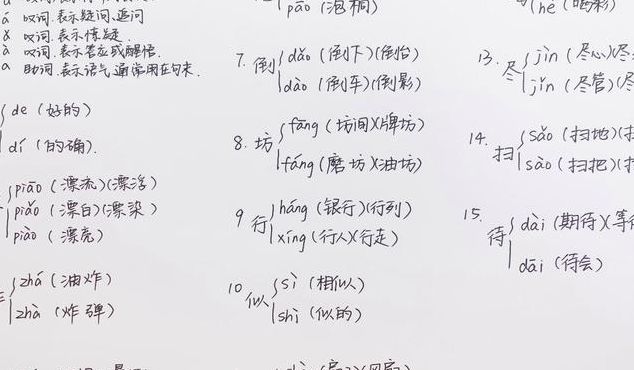 á 叹词.表示疑问.追问
ǎ 叹词.表示惊疑.
à 叹词.表示答应或醒悟.
a 助词.表示语气,通常用在句末.
de (好的)
dí (的确).
piāo (漂流)(漂浮)
piǎo (漂白)(漂染)
piào (漂亮)
zhá (油炸)
zhà (炸弹)
pāo (泡桐)
7. 倒 dǎo (倒下)(倒台)
dào (倒车)(倒影)
8. 坊 fāng (坊间)(牌坊)
fáng (磨坊)(油坊)
9 行 háng (银行)(行列)
xíng (行人)(行走)
10 似 sì (相似)
shì (似的)
hè (喝彩)
13. 尽 jìn (尽心)
jǐn (尽管)
14. 扫 sǎo (扫地)
sào (扫把)
15. 待 dài (期待)
dāi (待会)